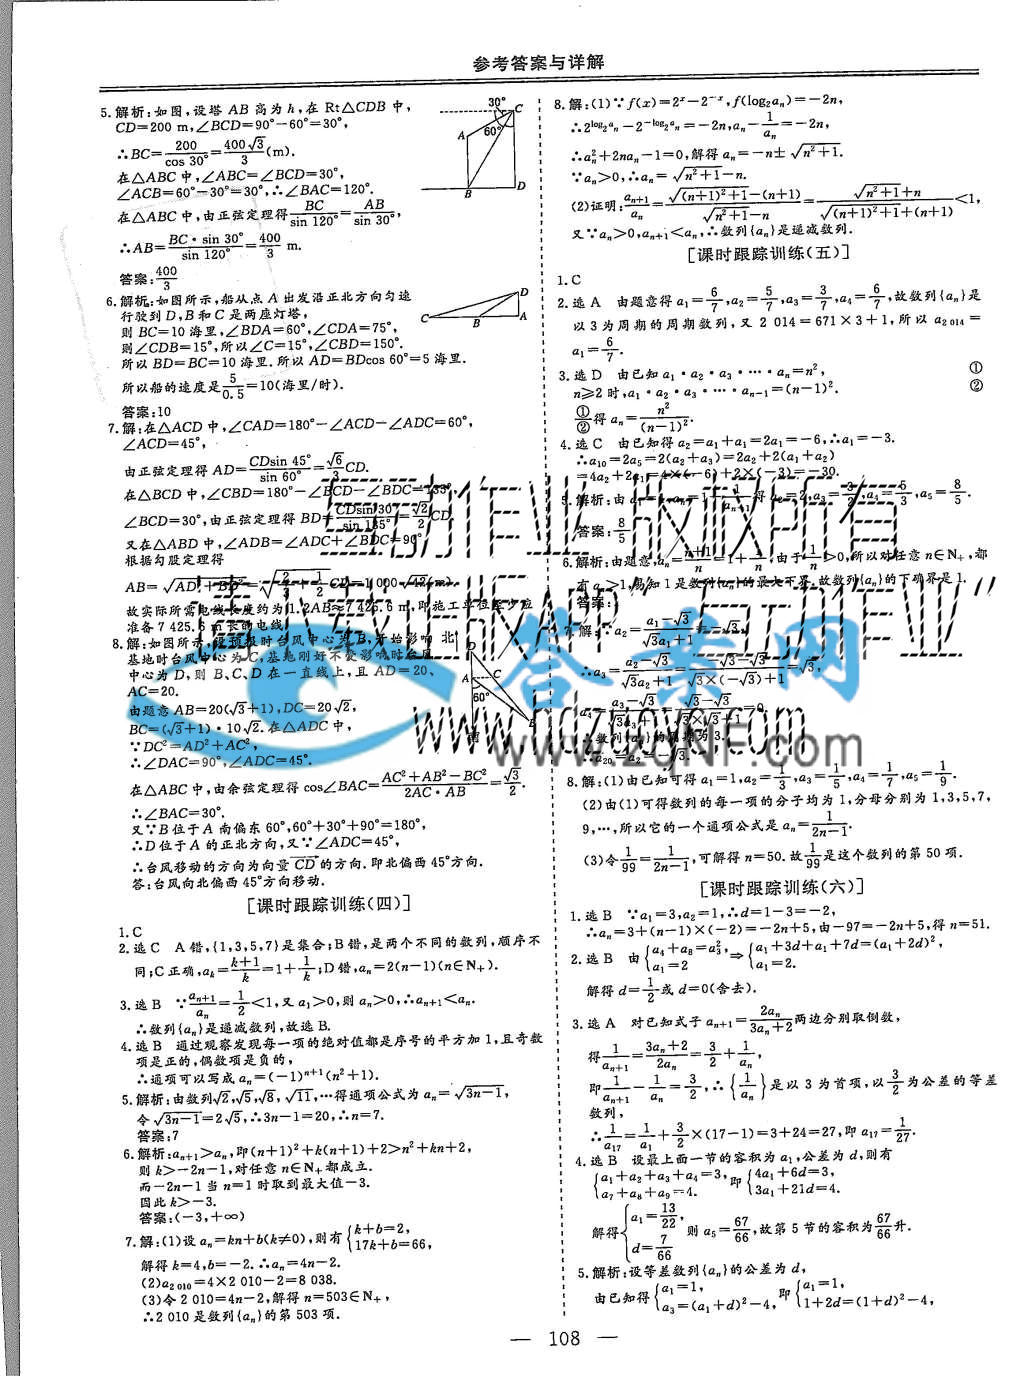 参考答案与详解
5.解析:如图,设塔 AB 高为 h,在 Rt△CDB 中,
CD=200 m,∠BCD=90°-60°=30°,
∴BC=200/cos 30°=400√3/3(m).
在△ABC 中,∠ABC=∠BCD=30°,
∠ACB=60°-30°=30°,∴∠BAC=120°.
在△ABC 中,由正弦定理得BC/sin 120°=AB/sin 30°,
∴AB=BC·sin 30°/sin 120°=400/3 m.
答案:400/3
30° C
60°
A
B D
6.解析:如图所示,船从点 A 出发沿正北方向匀速
行驶到 D,B 和 C 是两座灯塔,
则 BC=10 海里,∠BDA=60°,∠CDA=75°,
则∠CDB=15°,所以∠C=15°,∠CBD=150°.
所以 BD=BC=10 海里.所以 AD=BDcos 60°=5 海里.
所以船的速度是5/0.5=10(海里/时).
答案:10
D
C B A
7.解:在△ACD 中,∠CAD=180°-∠ACD-∠ADC=60°,
∠ACD=45°,
由正弦定理得 AD=CDsin 45°/sin 60°=√6/3 CD.
在△BCD 中,∠CBD=180°-∠BCD-∠BDC=135°
∠BCD=30°,由正弦定理得 BD=CDsin 30°/sin 135°=√2/2 CD
又在△ABD 中,∠ADB=∠ADC+∠BDC=90°
根据勾股定理得
AB=√AD
故实际所需电线长度约为 1.2AB≈7 425.6 m,即施工单位至少应
准备 7 425.6 m 长的电线
8.解:如图所示,设预报时台风中心为 B,开始影响
基地时台风中心为 C,基地刚好不受影响时台风
中心为 D,则 B、C、D 在一直线上,且 AD=20、
AC=20.
由题意 AB=20(√3+1),DC=20√2,
BC=(√3+1)·10√2.在△ADC 中,
∵DC²=AD²+AC²,
∴∠DAC=90°,∠ADC=45°.
在△ABC 中,由余弦定理得 cos∠BAC=AC²+AB²-BC²/2AC·AB=√3/2.
∴∠BAC=30°.
又∵B 位于 A 南偏东 60°,60°+30°+90°=180°,
∴D 位于 A 的正北方向,又∵∠ADC=45°,
∴台风移动的方向为向量CD的方向.即北偏西 45°方向.
答:台风向北偏西 45°方向移动.
北
D
A C
60°
B
[课时跟踪训练(四)]
1.C
2.选 C A 错,{1,3,5,7}是集合;B 错,是两个不同的数列,顺序不
同;C 正确,aₖ=k+1/k=1+1/k;D 错,aₙ=2(n-1)(n∈N₊).
3.选 B ∵aₙ₊₁/aₙ=1/2<1,又 a₁>0,则 aₙ>0,∴aₙ₊₁<aₙ.
∴数列{aₙ}是递减数列,故选 B.
4.选 B 通过观察发现每一项的绝对值都是序号的平方加 1,且奇数
项是正的,偶数项是负的,
∴通项可以写成 aₙ=(-1)ⁿ⁺¹(n²+1).
5.解析:由数列√2,√5,√8,√11,…得通项公式为 aₙ=√3n-1,
令√3n-1=2√5,∴3n-1=20,∴n=7.
答案:7
6.解析:aₙ₊₁>aₙ,即(n+1)²+k(n+1)+2>n²+kn+2,
则 k>-2n-1,对任意 n∈N₊都成立.
而-2n-1 当 n=1 时取到最大值-3.
因此 k>-3.
答案:(-3,+∞)
7.解:(1)设 aₙ=kn+b(k≠0),则有{k+b=2,
17k+b=66,
解得 k=4,b=-2.∴aₙ=4n-2.
(2)a₂₀₁₀=4×2 010-2=8 038.
(3)令 2 010=4n-2,解得 n=503∈N₊,
∴2 010 是数列{aₙ}的第 503 项.
8.解:(1)∵f(x)=2ˣ-2⁻ˣ,f(log₂aₙ)=-2n,
∴2^log₂aₙ-2^-log₂aₙ=-2n,aₙ-1/aₙ=-2n,
∴aₙ²+2naₙ-1=0,解得 aₙ=-n±√n²+1.
∵aₙ>0,∴aₙ=√n²+1-n.
(2)证明:aₙ₊₁/aₙ=√(n+1)²+1-(n+1)/√n²+1-n=√n²+1+n/√(n+1)²+1+(n+1)<1,
又∵aₙ>0,aₙ₊₁<aₙ,∴数列{aₙ}是递减数列.
[课时跟踪训练(五)]
1.C
2.选 A 由题意得 a₁=6/7,a₂=5/7,a₃=3/7,a₄=6/7,故数列{aₙ}是
以 3 为周期的周期数列,又 2 014=671×3+1,所以 a₂₀₁₄=
a₁=6/7.
3.选 D 由已知 a₁·a₂·a₃·…·aₙ=n², ①
n≥2 时,a₁·a₂·a₃·…·aₙ₋₁=(n-1)². ②
①/②得 aₙ=n²/(n-1)².
4.选 C 由已知得 a₂=a₁+a₁=2a₁=-6,∴a₁=-3.
∴a₁₀=2a₅=2(a₂+a₃)=2a₂+2(a₁+a₂)
=4a₂+2a₁=4×(-6)+2×(-3)=-30.
5.解析:由 得 a₂=2,a₃=3/2,a₄=5/3,a₅=8/5.
答案:8/5
6.解析:由题意,aₙ=n+1/n=1+1/n,由于1/n>0,所以对任意 n∈N₊,都
有 aₙ>1,易知 1 是数列{aₙ}的最大下界,故数列{aₙ}的下确界是 1.
答案:
7.解:∵a₂=a₁-√3/√3a₁+1=-√3,
∴a₃=a₂-√3/√3a₂+1=-√3-√3/√3×(-√3)+1=√3,
a₄=a₃-√3/√3a₃+1=√3-√3/√3×√3+1=0,
∴数列{aₙ}的周期为 3.
∴a₂₀=a₂=-√3.
8.解:(1)由已知可得 a₁=1,a₂=1/3,a₃=1/5,a₄=1/7,a₅=1/9.
(2)由(1)可得数列的每一项的分子均为 1,分母分别为 1,3,5,7,
9,…,所以它的一个通项公式是 aₙ=1/2n-1.
(3)令1/99=1/2n-1,可解得 n=50.故1/99是这个数列的第 50 项.
[课时跟踪训练(六)]
1.选 B ∵a₁=3,a₂=1,∴d=1-3=-2,
∴aₙ=3+(n-1)×(-2)=-2n+5,由-97=-2n+5,得 n=51.
2.选 B 由{a₄+a₈=a₃², a₁=2 ⇒{a₁+3d+a₁+7d=(a₁+2d)², a₁=2.
解得 d=1/2或 d=0(舍去).
3.选 A 对已知式子 aₙ₊₁=2aₙ/3aₙ+2两边分别取倒数,
得1/aₙ₊₁=3aₙ+2/2aₙ=3/2+1/aₙ,
即1/aₙ₊₁-1/aₙ=3/2,∴{1/aₙ}是以 3 为首项,以3/2为公差的等差
数列,
∴1/a₁₇=1/a₁+3/2×(17-1)=3+24=27,即 a₁₇=1/27.
4.选 B 设最上面一节的容积为 a₁,公差为 d,则有
{a₁+a₂+a₃+a₄=3, a₇+a₈+a₉=4. 即{4a₁+6d=3, 3a₁+21d=4.
解得{a₁=13/22, d=7/66 则 a₅=67/66,故第 5 节的容积为67/66升.
5.解析:设等差数列{aₙ}的公差为 d,
由已知得{a₁=1, a₃=(a₁+d)²-4, 即{a₁=1, 1+2d=(1+d)²-4,
— 108 —